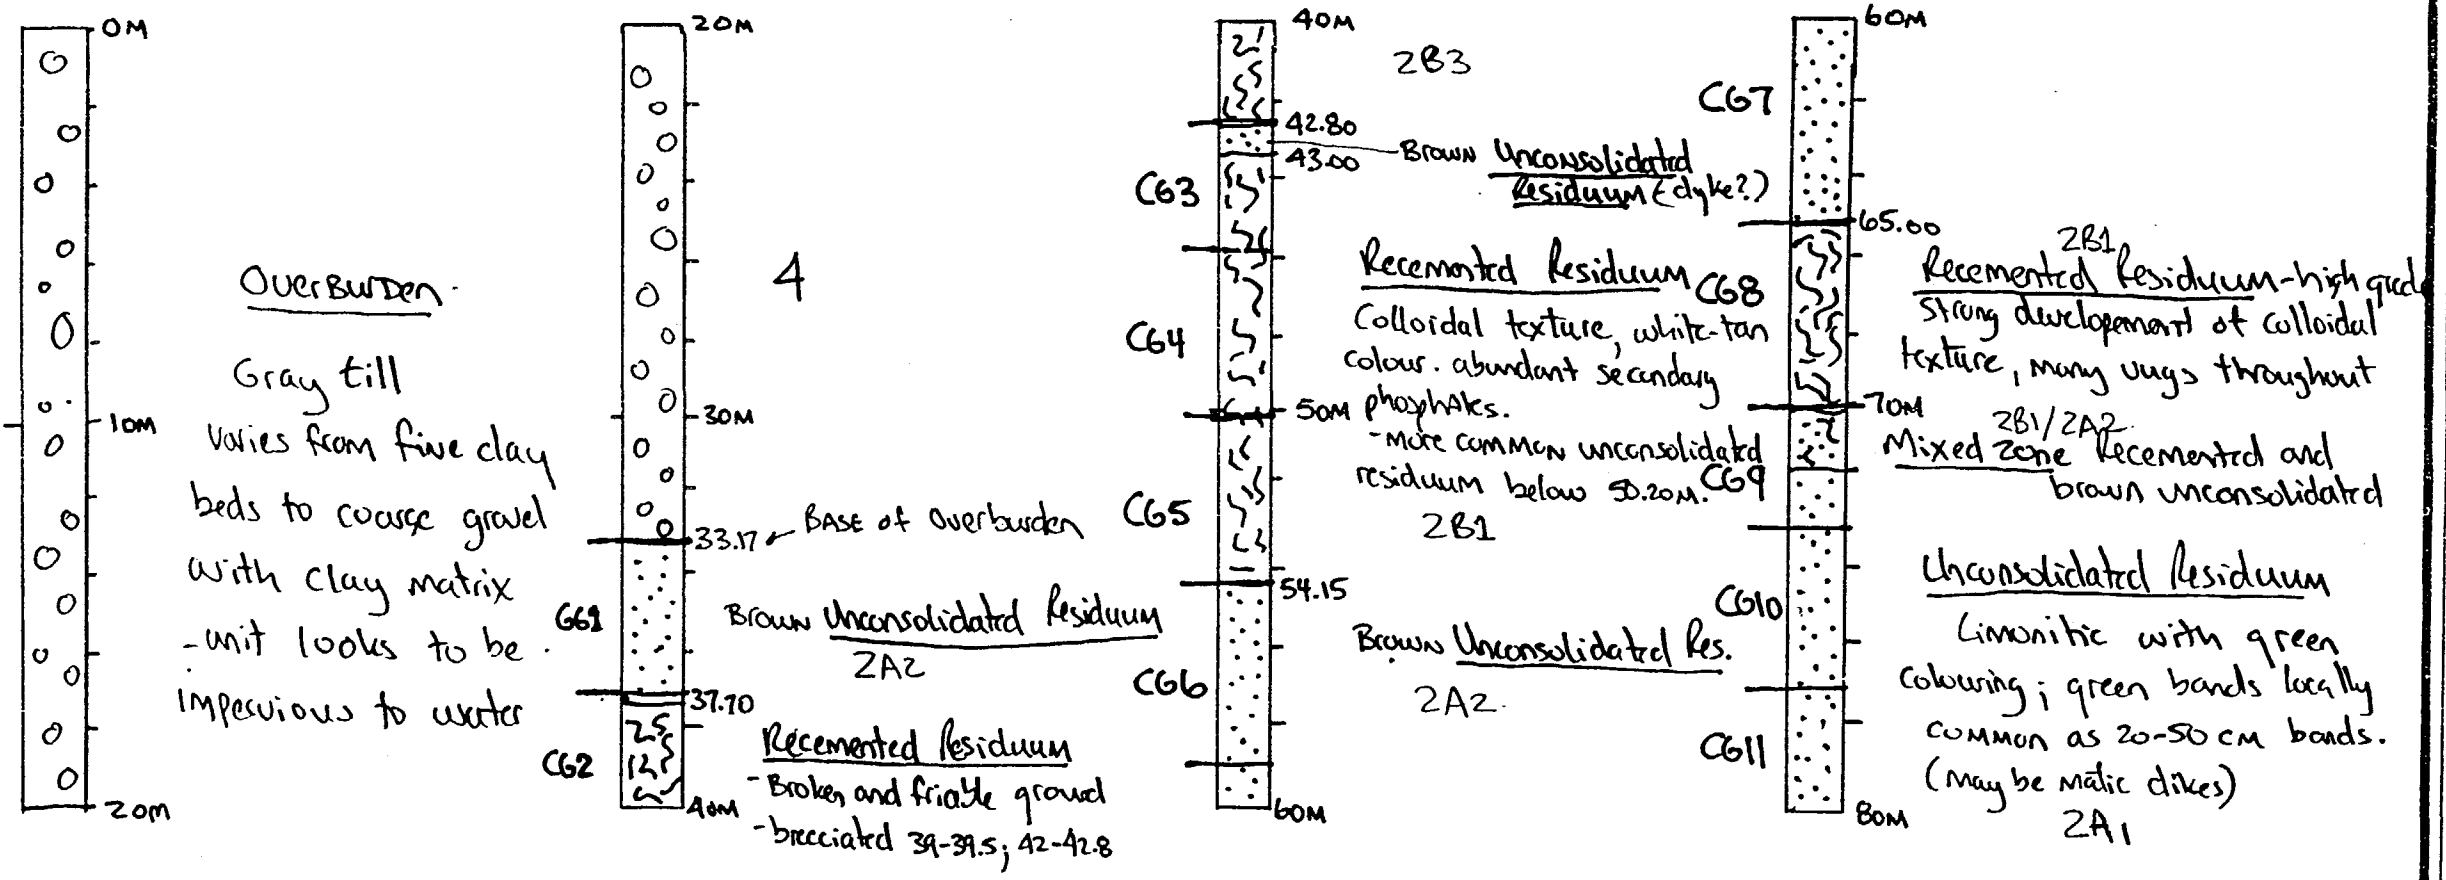 0M
10M
20M
OverBurden
Gray till
varies from fine clay
beds to coarse gravel
with clay matrix
-unit looks to be
impervious to water
20M
4
30M
33.17 BASE of Overburden
GG1
Brown Unconsolidated Residuum
2A2
37.70
CG2
Recemented Residuum
-Broken and friable ground
-brecciated 39-39.5; 42-42.8
40M
40M
2B3
42.80
43.00
Brown Unconsolidated
Residuum (dyke?)
CG3
Recemented Residuum
Colloidal texture, white-tan
colour. abundant secondary
phosphates.
-more common unconsolidated
residuum below 50.20M.
2B1
CG4
50M
CG5
54.15
Brown Unconsolidated Res.
2A2
CG6
60M
60M
CG7
65.00
2B1
Recemented Residuum-high grade
strong developement of colloidal
texture, many vugs throughout
CG8
70M
2B1/2A2
Mixed Zone Recemented and
brown unconsolidated
CG9
Unconsolidated Residuum
Limonitic with green
colouring; green bands locally
common as 20-50 cm bands.
(may be mafic dikes)
2A1
CG10
CG11
80M